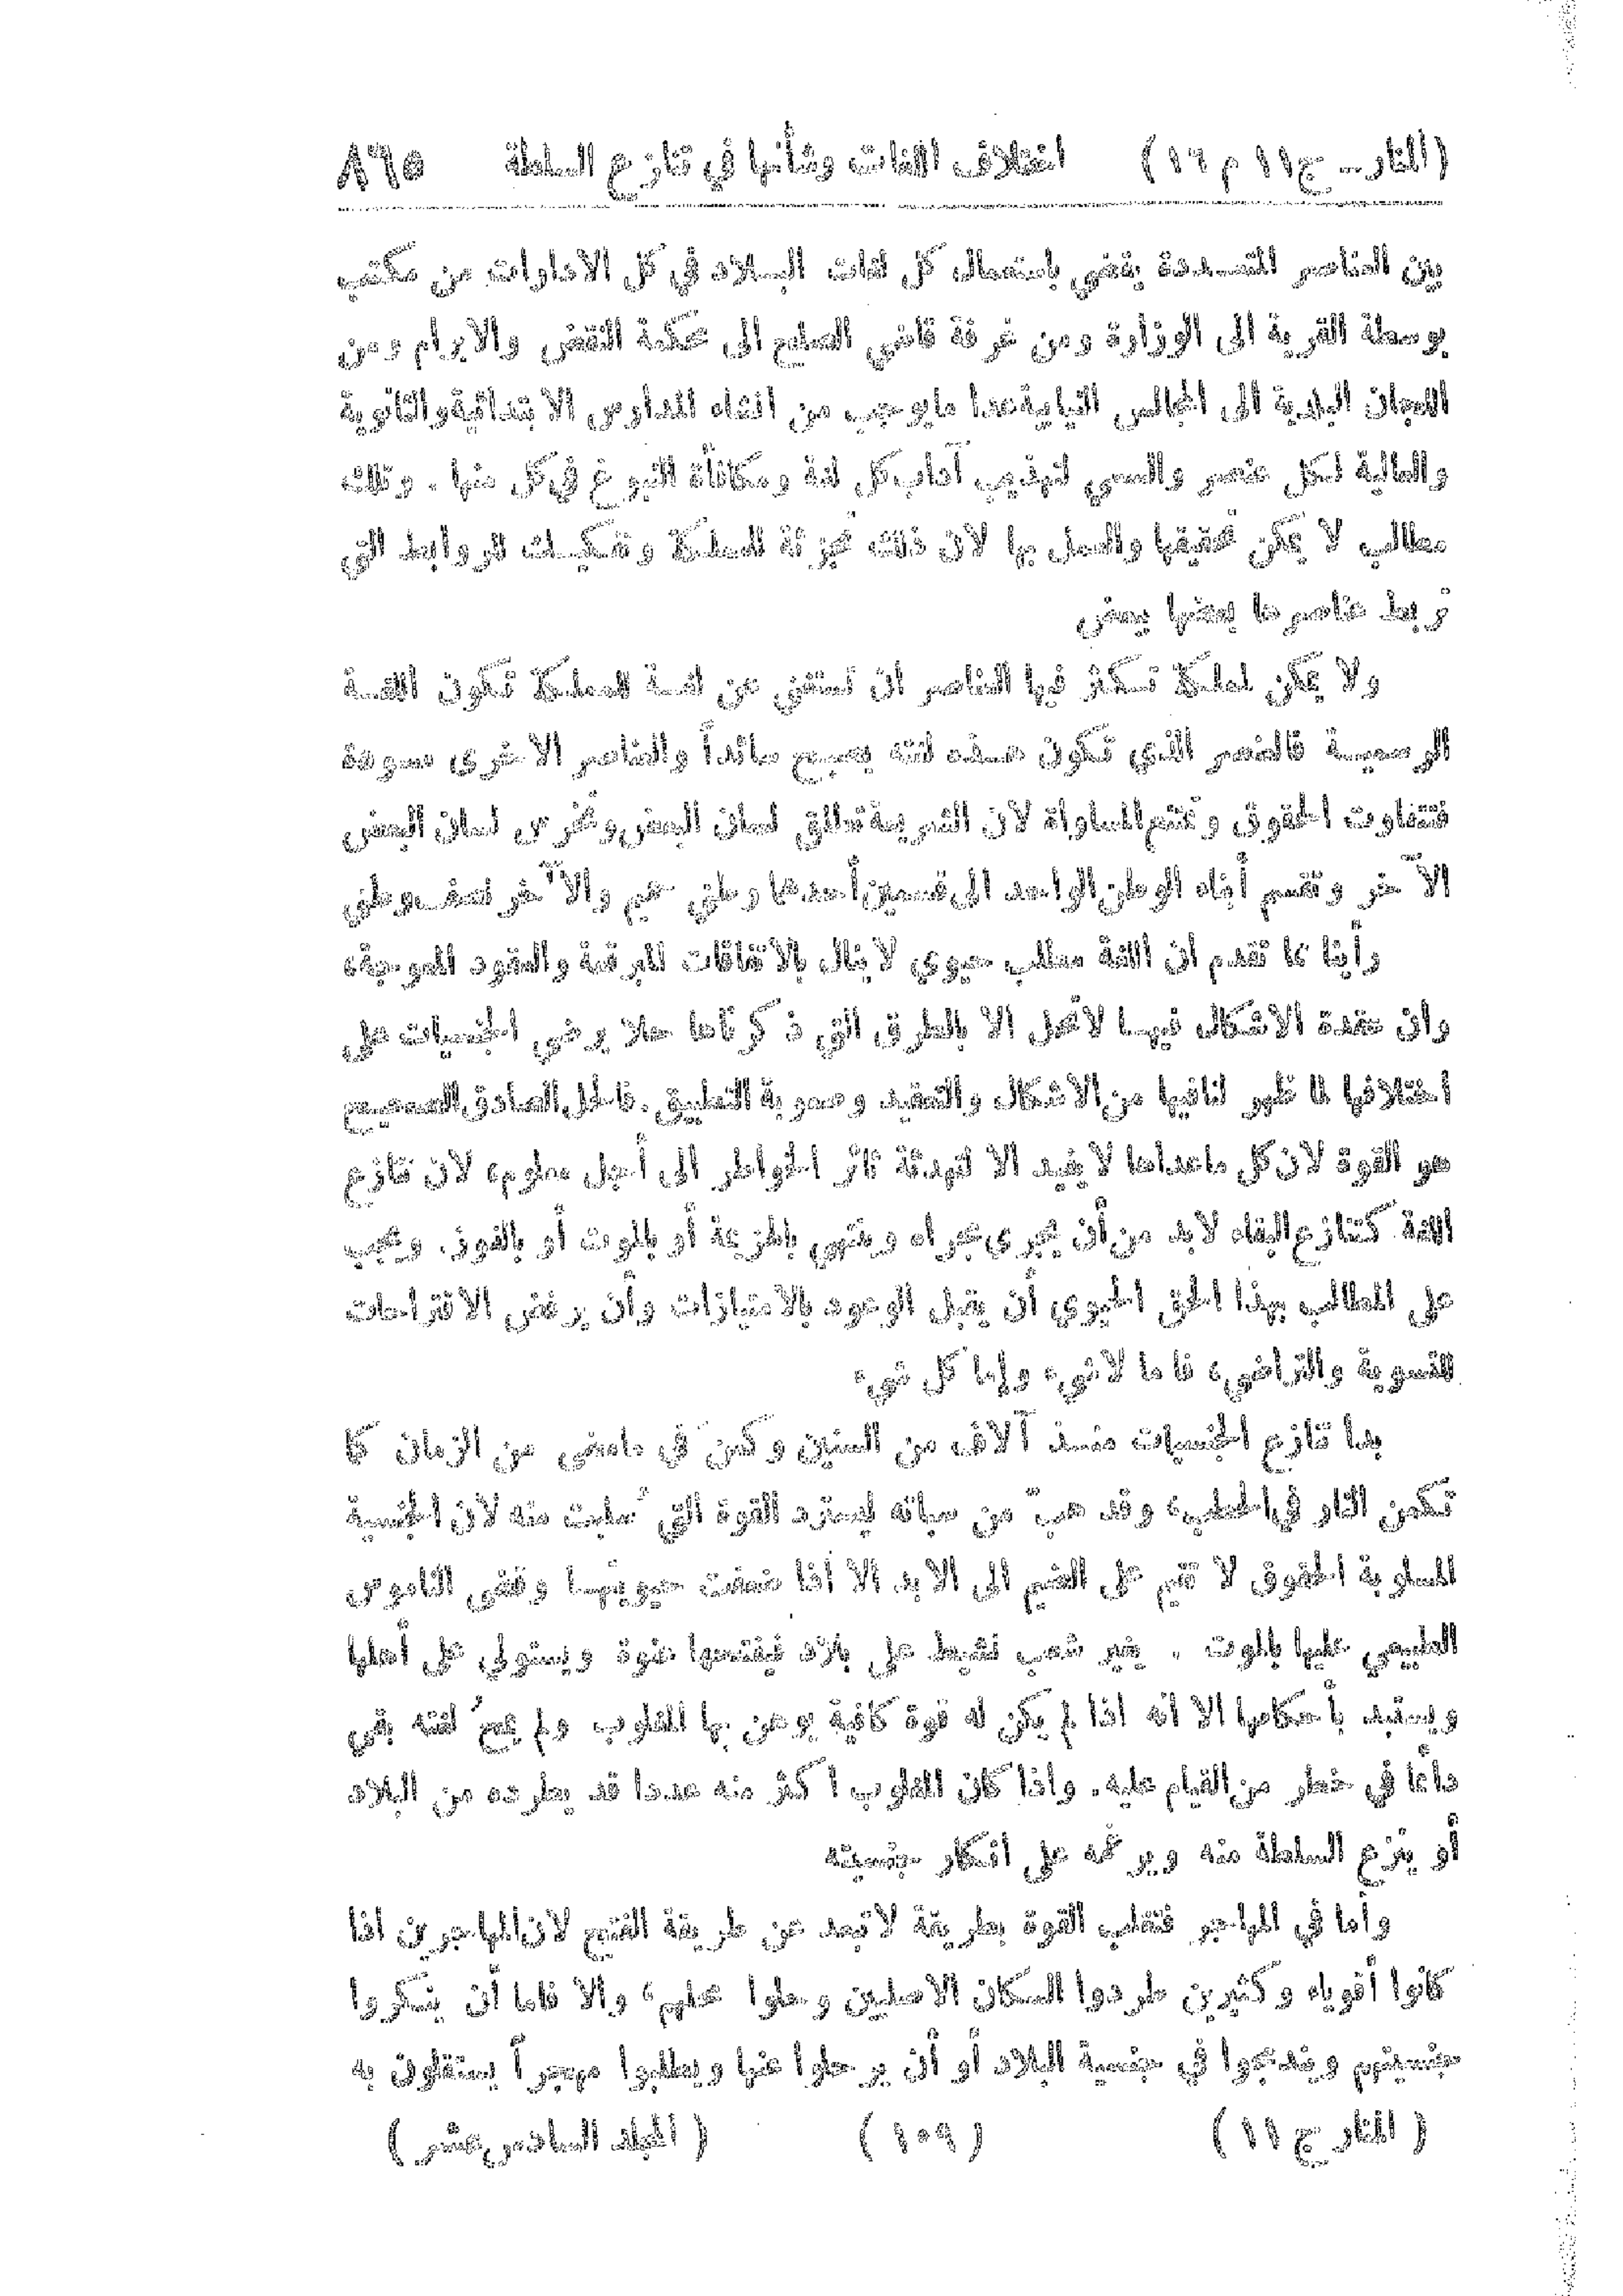 (المنار – ج ١١ م ١٦) اختلاف اللغات وشأنها في تنازع السلطة ٨٦٥
بين العناصر المتعددة يقضي باستعمال كل لغات البلاد في كل الادارات من مكتب
بوسطة القرية الى الوزارة ومن غرفة قاضي الصلح الى محكمة النقض والابرام ومن
اللجان البلدية الى المجالس النيابية عدا ما يوجب من انشاء المدارس الابتدائية والثانوية
والعالية لكل عنصر والسعي لتهذيب آداب كل لغة ومكافأة النبوغ في كل منها . وتلك
مطالب لا يمكن تحقيقها والعمل بها لان ذلك تجزئة للمملكة وتفكيك للروابط التي
تربط عناصرها بعضها ببعض
ولا يمكن لمملكة تكثر فيها العناصر ان تستغني عن لغة للمملكة تكون اللغة
الرسمية فالعنصر الذي تكون هذه لغته يصبح سائداً والعناصر الاخرى مسودة
فتتفاوت الحقوق وتمتنع المساواة لان الشريعة تطلق لسان البعض وتخرس لسان البعض
الآخر وتقسم أبناء الوطن الواحد الى قسمين أحدهما وطني عم والآخر نصف وطني
رأينا مما تقدم ان اللغة مطلب حيوي لا ينال بالاتفاقات المبرقة والعقود المموجة،
وان عقدة الاشكال فيها لا تحل الا بالطرق التي ذكرناها حلا يرضي الجنسيات على
اختلافها لما ظهر لنا فيها من الاشكال والتعقيد وصعوبة التطبيق . فالحل الصادق الصحيح
هو القوة لان كل ما عداها لا يفيد الا لتهدئة ثائر الخواطر الى أجل معلوم، لان تنازع
اللغة كتنازع البقاء لابد من أن يجري مجراه وينتهي بالهزيمة أو بالموت أو بالفوز. ويجب
على المطالب بهذا الحق الحيوي أن يقبل الوعود بالامتيازات وأن يرفض الاقتراحات
للتسوية والتراضي، فاما لا شيء وإما كل شيء
بدا تنازع الجنسيات منذ آلاف من السنين وكمن في ما مضى من الزمان كما
تكمن النار في الحطب، وقد هبّ من سباته ليسترد القوة التي سلبت منه لان الجنسية
المسلوبة الحقوق لا تقيم على الضيم الى الابد الا اذا ضعفت حيويتها وقضى الناموس
الطبيعي عليها بالموت . يغير شعب نشيط على بلاد فيفتتحها عنوة ويستولي على أهلها
ويستبد بأحكامها الا انه اذا لم يكن له قوة كافية يوهن بها المغلوب ولم يمحُ لغته بقي
دائما في خطر من القيام عليه. واذا كان المغلوب أكثر منه عددا قد يطرده من البلاد
أو ينزع السلطة منه ويرغمه على انكار جنسيته
وأما في المهاجر فتغلب القوة بطريقة لا تبعد عن طريقة الفتح لان المهاجرين اذا
كانوا أقوياء وكثيرين طردوا السكان الاصليين وحلوا محلهم، والا فاما أن ينكروا
جنسيتهم ويندمجوا في جنسية البلاد أو أن يرحلوا عنها ويطلبوا مهجراً يستقلون به
( المنار ج ١١ ) ( ١٠٩ ) ( المجلد السادس عشر )